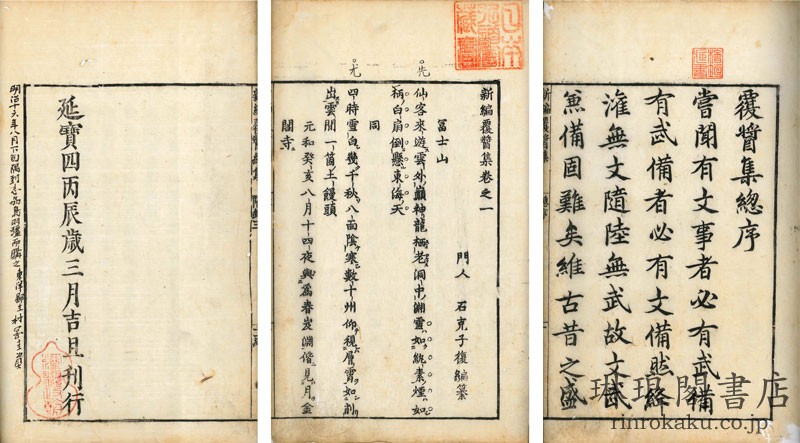 覆醬集總序
嘗聞有文事者必有武備
有武備者必有文備然絳
灌無文隨陸無武故文武
兼備固難矣維古昔之盛
新編覆醬集
新編覆醬集卷之一
門人 石克子復編纂
冨士山
仙客來遊雲外巓神龍栖老洞中淵雪如紈素煙如
柄白扇倒懸東海天
同
四時雪白幾千秋八面陰寒數十州仰視層霄如削
出雲間一箇土饅頭
元和癸亥八月十四夜與爲春偕見月金
閣寺
延寶四丙辰歲三月吉旦刊行
明治十六年八月下旬
琳琅閣書店
rinrokaku.co.jp